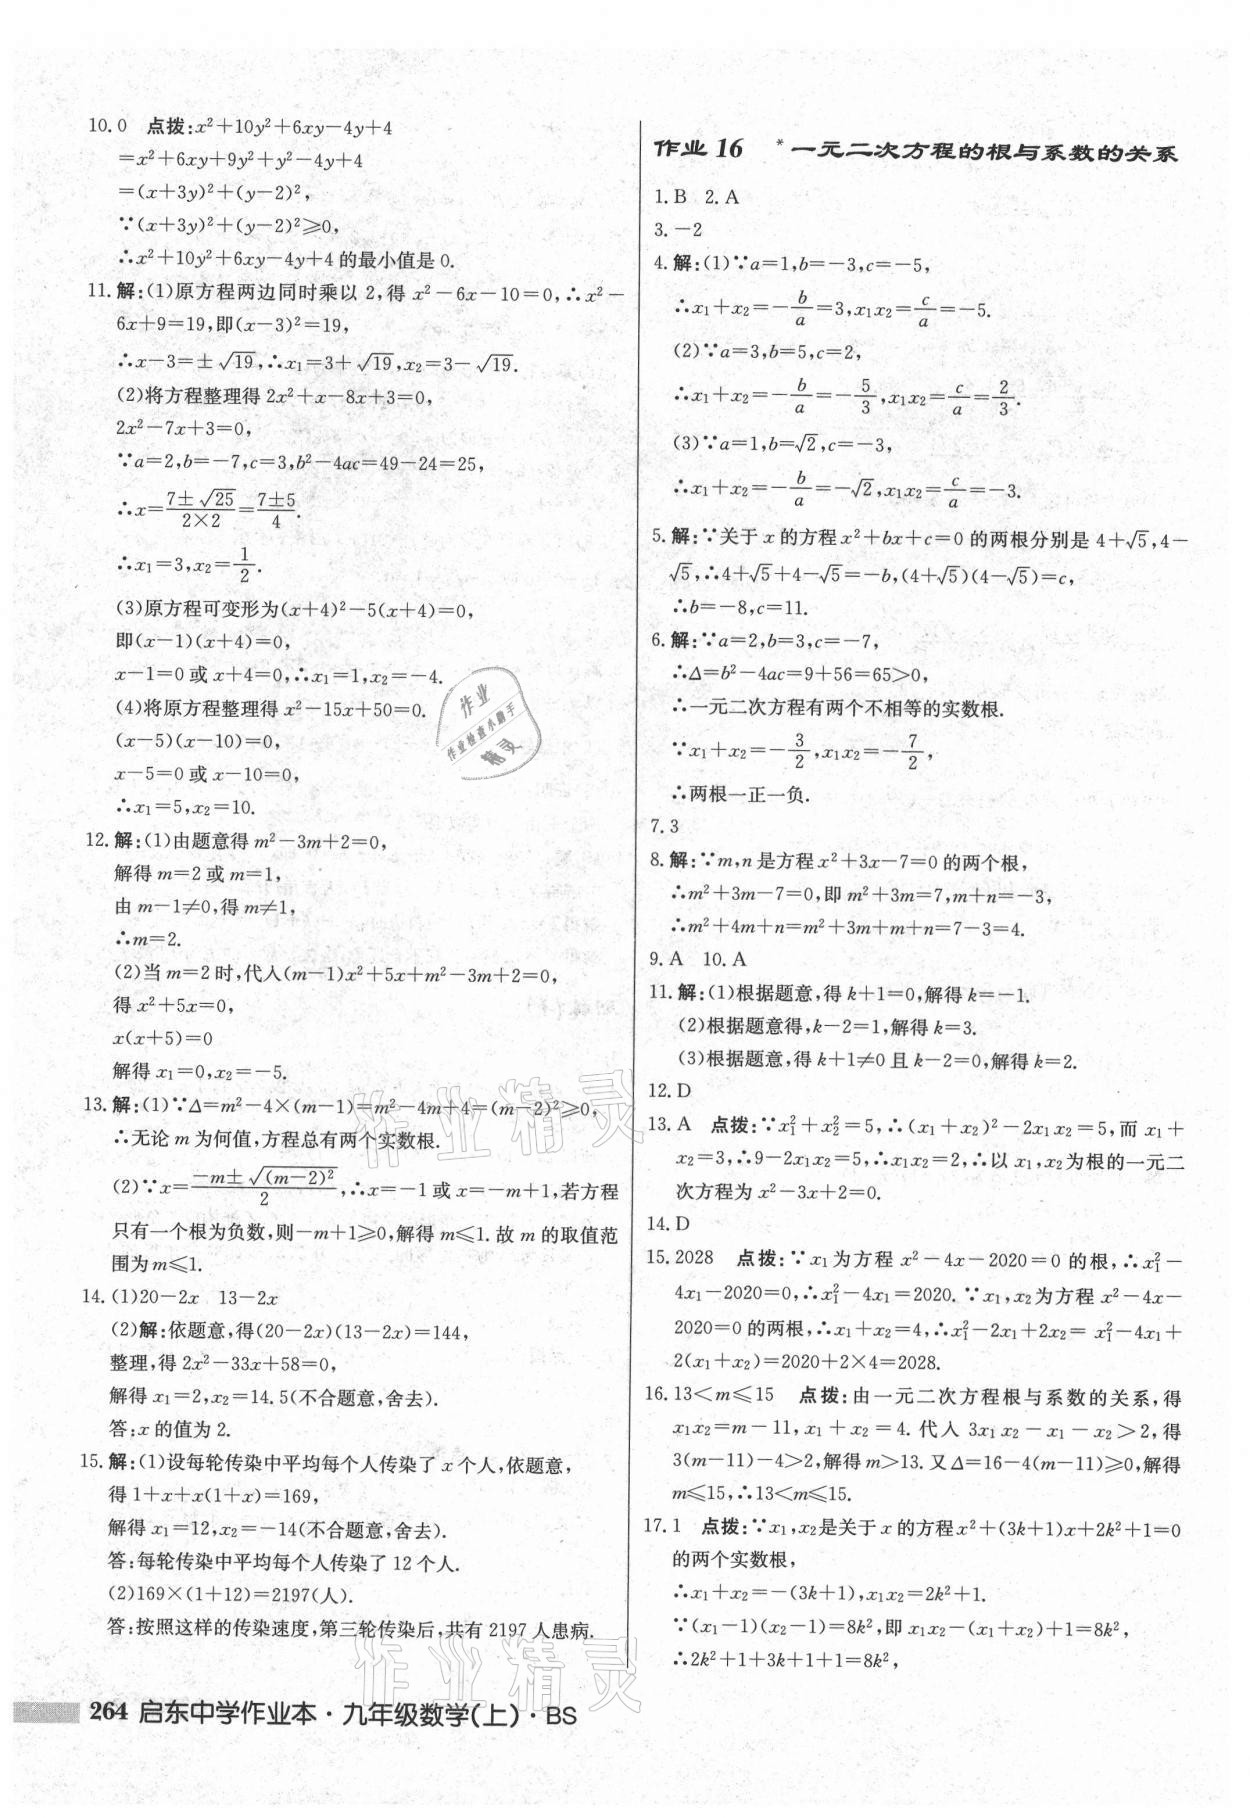 10.0 点拨:x²+10y²+6xy-4y+4
=x²+6xy+9y²+y²-4y+4
=(x+3y)²+(y-2)²,
∵(x+3y)²+(y-2)²≥0,
∴x²+10y²+6xy-4y+4的最小值是0.
11.解:(1)原方程两边同时乘以2,得x²-6x-10=0,∴x²-
6x+9=19,即(x-3)²=19,
∴x-3=±√19,∴x₁=3+√19,x₂=3-√19.
(2)将方程整理得2x²+x-8x+3=0,
2x²-7x+3=0,
∵a=2,b=-7,c=3,b²-4ac=49-24=25,
∴x=(7±√25)/(2×2)=(7±5)/4.
∴x₁=3,x₂=1/2.
(3)原方程可变形为(x+4)²-5(x+4)=0,
即(x-1)(x+4)=0,
x-1=0或x+4=0,∴x₁=1,x₂=-4.
(4)将原方程整理得x²-15x+50=0.
(x-5)(x-10)=0,
x-5=0或x-10=0,
∴x₁=5,x₂=10.
12.解:(1)由题意得m²-3m+2=0,
解得m=2或m=1,
由m-1≠0,得m≠1,
∴m=2.
(2)当m=2时,代入(m-1)x²+5x+m²-3m+2=0,
得x²+5x=0,
x(x+5)=0
解得x₁=0,x₂=-5.
13.解:(1)∵Δ=m²-4×(m-1)=m²-4m+4=(m-2)²≥0,
∴无论m为何值,方程总有两个实数根.
(2)∵x=(-m±√(m-2)²)/2,∴x=-1或x=-m+1,若方程
只有一个根为负数,则-m+1≥0,解得m≤1.故m的取值范
围为m≤1.
14.(1)20-2x 13-2x
(2)解:依题意,得(20-2x)(13-2x)=144,
整理,得2x²-33x+58=0,
解得x₁=2,x₂=14.5(不合题意,舍去).
答:x的值为2.
15.解:(1)设每轮传染中平均每个人传染了x个人,依题意,
得1+x+x(1+x)=169,
解得x₁=12,x₂=-14(不合题意,舍去).
答:每轮传染中平均每个人传染了12个人.
(2)169×(1+12)=2197(人).
答:按照这样的传染速度,第三轮传染后,共有2197人患病.
作业16 *一元二次方程的根与系数的关系
1.B 2.A
3.-2
4.解:(1)∵a=1,b=-3,c=-5,
∴x₁+x₂=-b/a=3,x₁x₂=c/a=-5.
(2)∵a=3,b=5,c=2,
∴x₁+x₂=-b/a=-5/3,x₁x₂=c/a=2/3.
(3)∵a=1,b=√2,c=-3,
∴x₁+x₂=-b/a=-√2,x₁x₂=c/a=-3.
5.解:∵关于x的方程x²+bx+c=0的两根分别是4+√5,4-
√5,∴4+√5+4-√5=-b,(4+√5)(4-√5)=c,
∴b=-8,c=11.
6.解:∵a=2,b=3,c=-7,
∴Δ=b²-4ac=9+56=65>0,
∴一元二次方程有两个不相等的实数根.
∵x₁+x₂=-3/2,x₁x₂=-7/2,
∴两根一正一负.
7.3
8.解:∵m,n是方程x²+3x-7=0的两个根,
∴m²+3m-7=0,即m²+3m=7,m+n=-3,
∴m²+4m+n=m²+3m+m+n=7-3=4.
9.A 10.A
11.解:(1)根据题意,得k+1=0,解得k=-1.
(2)根据题意得,k-2=1,解得k=3.
(3)根据题意,得k+1≠0且k-2=0,解得k=2.
12.D
13.A 点拨:∵x₁²+x₂²=5,∴(x₁+x₂)²-2x₁x₂=5,而x₁+
x₂=3,∴9-2x₁x₂=5,∴x₁x₂=2,∴以x₁,x₂为根的一元二
次方程为x²-3x+2=0.
14.D
15.2028 点拨:∵x₁为方程x²-4x-2020=0的根,∴x₁²-
4x₁-2020=0,∴x₁²-4x₁=2020.∵x₁,x₂为方程x²-4x-
2020=0的两根,∴x₁+x₂=4,∴x₁²-2x₁+2x₂=x₁²-4x₁+
2(x₁+x₂)=2020+2×4=2028.
16.13<m≤15 点拨:由一元二次方程根与系数的关系,得
x₁x₂=m-11,x₁+x₂=4.代入3x₁x₂-x₁-x₂>2,得
3(m-11)-4>2,解得m>13.又Δ=16-4(m-11)≥0,解得
m≤15,∴13<m≤15.
17.1 点拨:∵x₁,x₂是关于x的方程x²+(3k+1)x+2k²+1=0
的两个实数根,
∴x₁+x₂=-(3k+1),x₁x₂=2k²+1.
∵(x₁-1)(x₂-1)=8k²,即x₁x₂-(x₁+x₂)+1=8k²,
∴2k²+1+3k+1+1=8k²,
作业
作业检查小助手
精灵
作业精灵
作业精灵
264 启东中学作业本·九年级数学(上)·BS